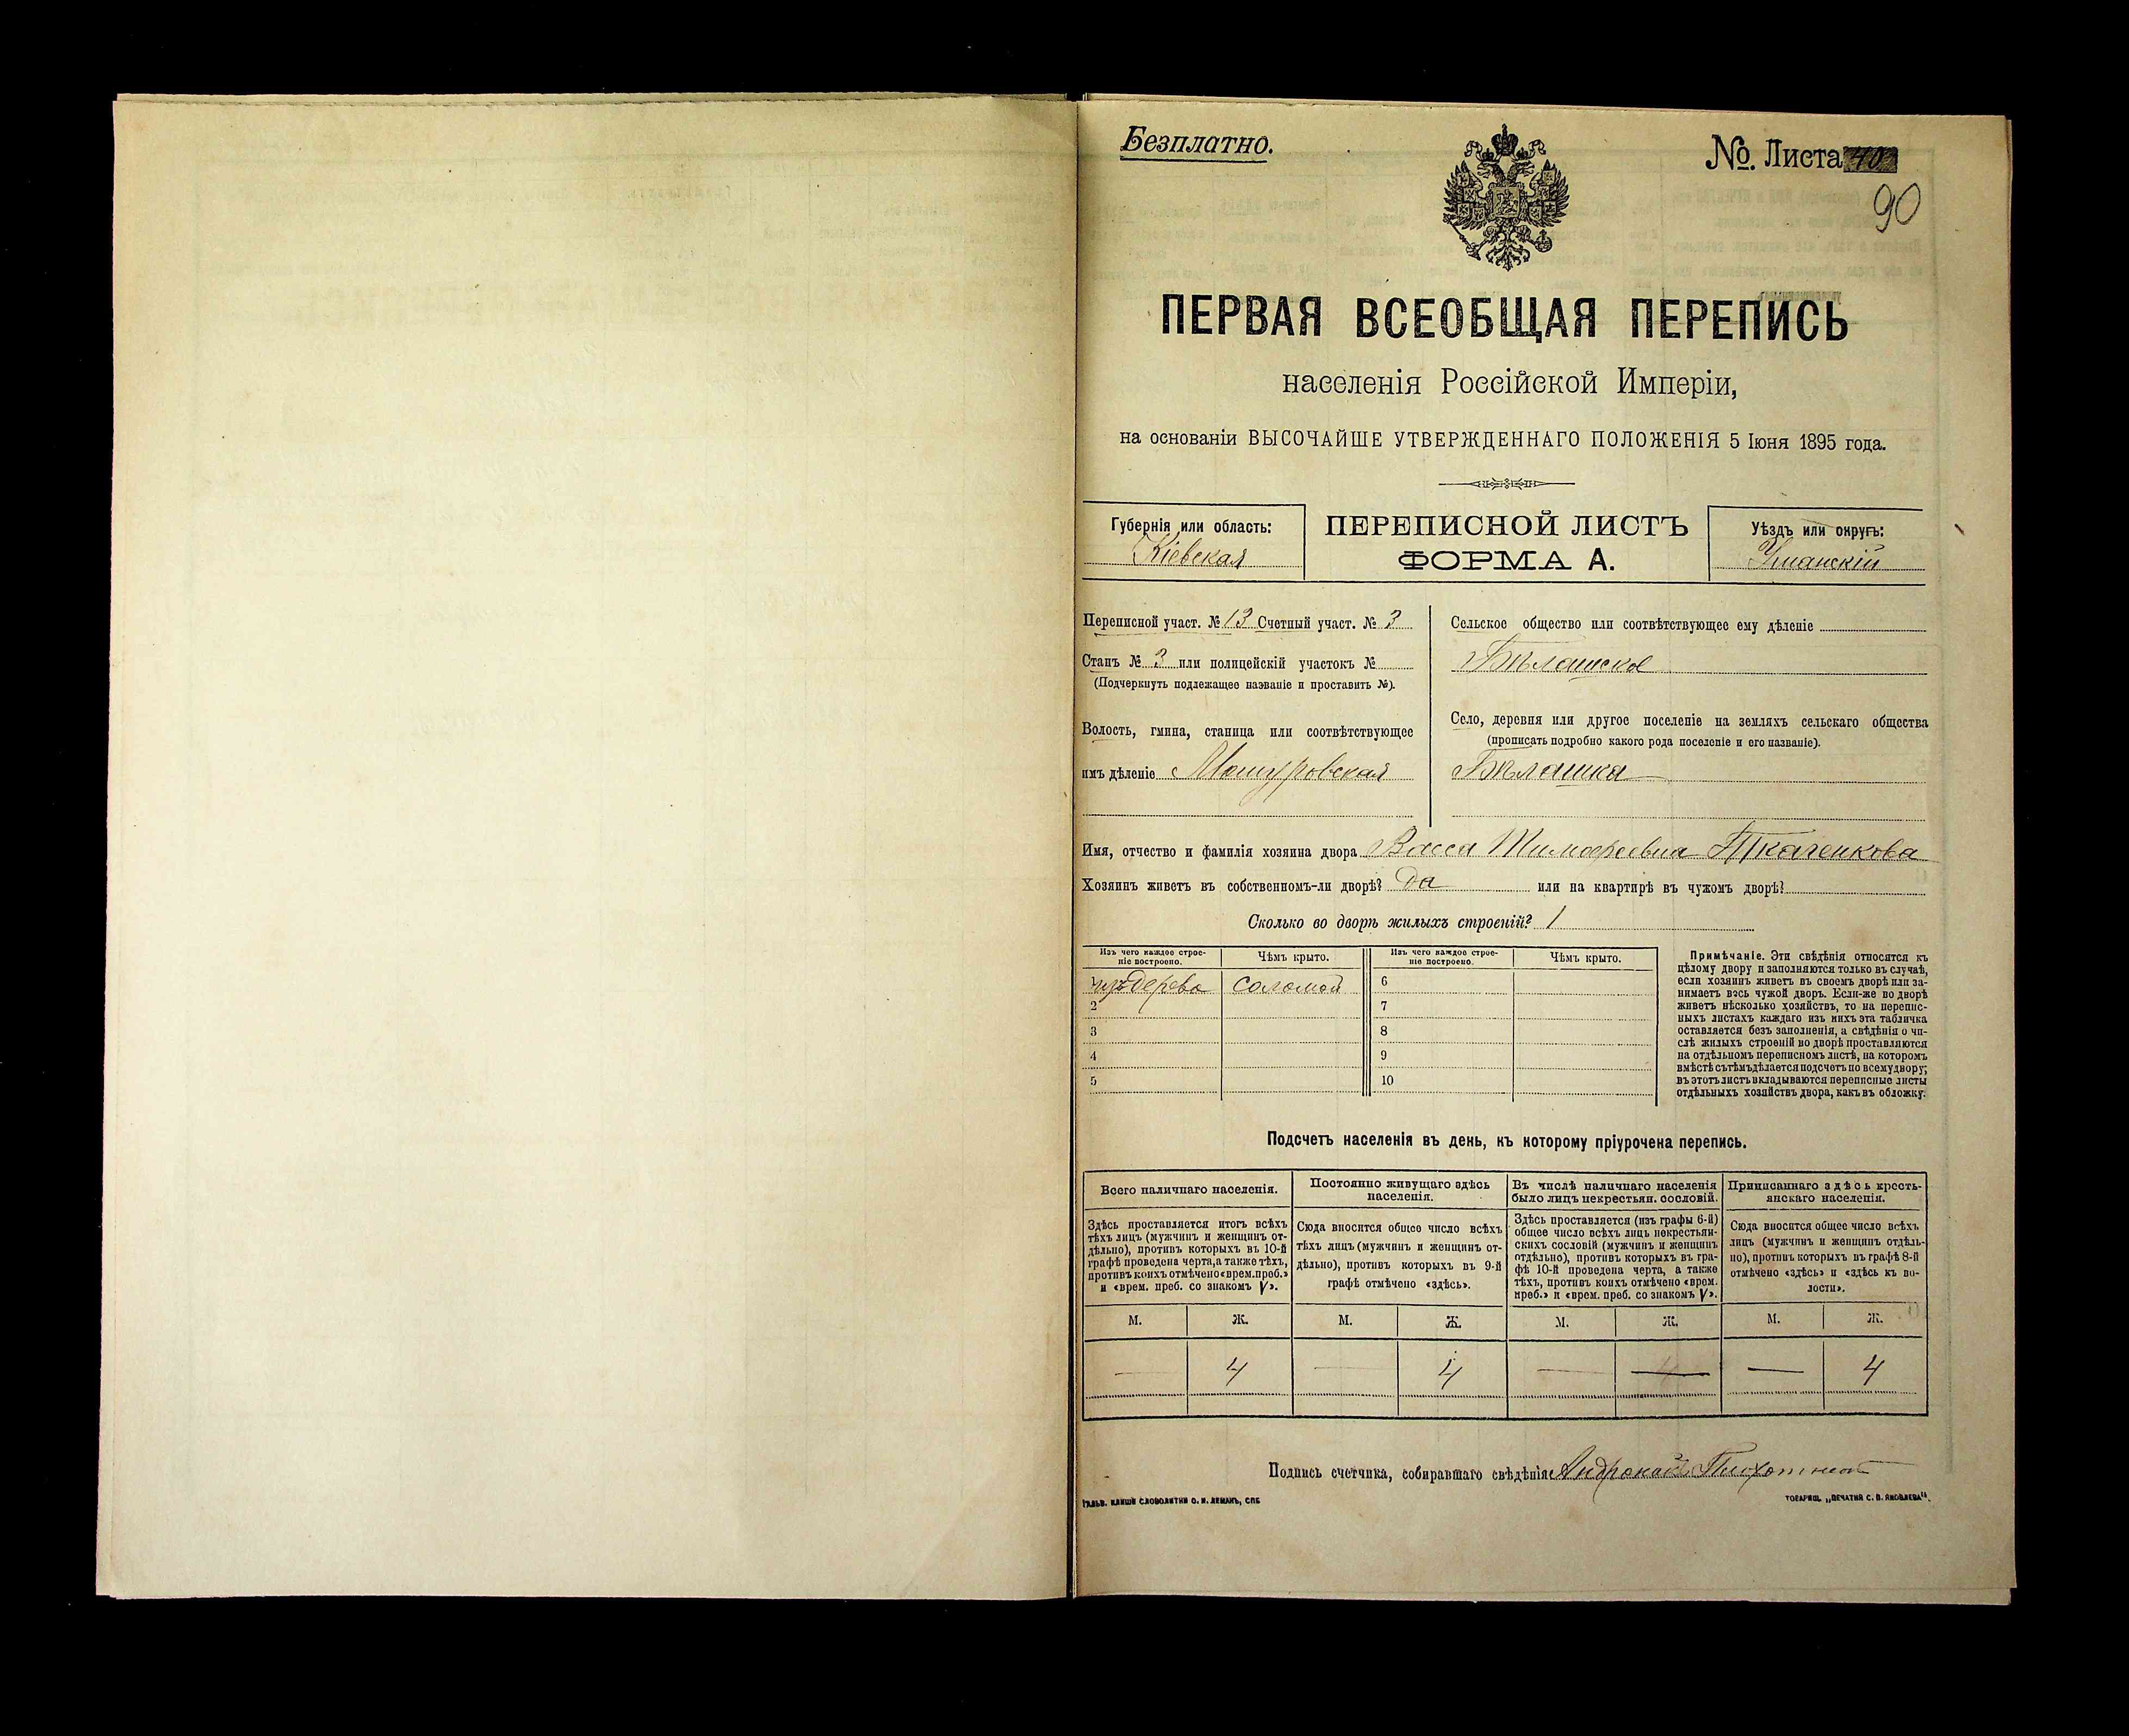 Безплатно.
№. Листа 40
90
ПЕРВАЯ ВСЕОБЩАЯ ПЕРЕПИСЬ
населенія Россійской Имперіи,
на основаніи ВЫСОЧАЙШЕ УТВЕРЖДЕННАГО ПОЛОЖЕНІЯ 5 Іюня 1895 года.
Губернія или область:
Кіевская
ПЕРЕПИСНОЙ ЛИСТЪ
ФОРМА А.
Уѣздъ или округъ:
Уманскій
Переписной участ. № 13 Счетный участ. № 3
Станъ № 3 или полицейскій участокъ №
(Подчеркнуть подлежащее названіе и проставить №).
Волость, гмина, станица или соотвѣтствующее
имъ дѣленіе Машуровская
Сельское общество или соотвѣтствующее ему дѣленіе
Бѣлашское
Село, деревня или другое поселеніе на земляхъ сельскаго общества
(прописать подробно какого рода поселеніе и его названіе).
Бѣлашка
Имя, отчество и фамилія хозяина двора Васса Тимофеевна Ткаченкова
Хозяинъ живетъ въ собственномъ-ли дворѣ? да или на квартирѣ въ чужомъ дворѣ?
Сколько во дворѣ жилыхъ строеній? 1
Изъ чего каждое строе-
ніе построено.
Чѣмъ крыто.
Изъ чего каждое строе-
ніе построено.
Чѣмъ крыто.
изъ дерева соломой 6
2 7
3 8
4 9
5 10
Примѣчаніе. Эти свѣдѣнія относятся къ
цѣлому двору и заполняются только въ случаѣ,
если хозяинъ живетъ въ своемъ дворѣ или за-
нимаетъ весь чужой дворъ. Если-же во дворѣ
живетъ нѣсколько хозяйствъ, то на перепис-
ныхъ листахъ каждаго изъ нихъ эта табличка
оставляется безъ заполненія, а свѣдѣнія о чи-
слѣ жилыхъ строеній во дворѣ проставляются
на отдѣльномъ переписномъ листѣ, на которомъ
вмѣстѣ съ тѣмъ дѣлается подсчетъ по всему двору;
въ этотъ листъ вкладываются переписные листы
отдѣльныхъ хозяйствъ двора, какъ въ обложку.
Подсчетъ населенія въ день, къ которому пріурочена перепись.
Всего наличнаго населенія.
Здѣсь проставляется итогъ всѣхъ
тѣхъ лицъ (мужчинъ и женщинъ от-
дѣльно), противъ которыхъ въ 10-й
графѣ проведена черта, а также тѣхъ,
противъ коихъ отмѣчено «врем. преб.»
и «врем. преб. со знакомъ V».
Постоянно живущаго здѣсь
населенія.
Сюда вносится общее число всѣхъ
тѣхъ лицъ (мужчинъ и женщинъ от-
дѣльно), противъ которыхъ въ 9-й
графѣ отмѣчено «здѣсь».
Въ числѣ наличнаго населенія
было лицъ некрестьян. сословій.
Здѣсь проставляется (изъ графы 6-й)
общее число всѣхъ лицъ некрестьян-
скихъ сословій (мужчинъ и женщинъ
отдѣльно), противъ которыхъ въ гра-
фѣ 10-й проведена черта, а также
тѣхъ, противъ коихъ отмѣчено «врем.
преб.» и «врем. преб. со знакомъ V».
Приписаннаго здѣсь кресть-
янскаго населенія.
Сюда вносится общее число всѣхъ
лицъ (мужчинъ и женщинъ отдѣль-
но), противъ которыхъ въ графѣ 8-й
отмѣчено «здѣсь» и «здѣсь къ во-
лости».
М. Ж. М. Ж. М. Ж. М. Ж.
— 4 — 4 — — — 4
Подпись счетчика, собиравшаго свѣдѣнія
ГАЛЬВ. КЛИШЕ СЛОВОЛИТНИ О. И. ЛЕМАНЪ, СПБ
ТОВАРИЩ. „ПЕЧАТНЯ С. П. ЯКОВЛЕВА".